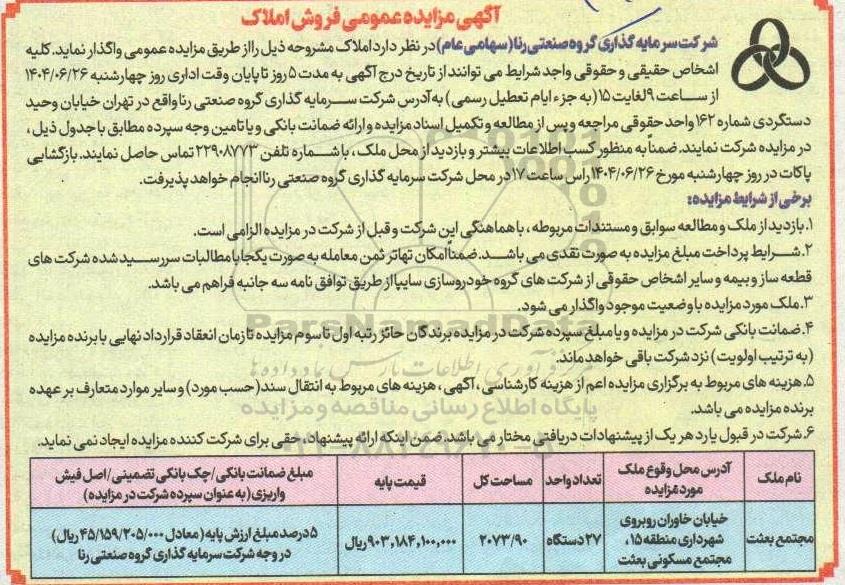 آگهی مزایده عمومی فروش املاک
شرکت سرمایه گذاری گروه صنعتی رنا (سهامی عام) در نظر دارد املاک مشروحه ذیل را از طریق مزایده عمومی واگذار نماید. کلیه
اشخاص حقیقی و حقوقی واجد شرایط می توانند از تاریخ درج آگهی به مدت ۵ روز تا پایان وقت اداری روز چهارشنبه ۱۴۰۴/۰۶/۲۶
از ساعت ۹ لغایت ۱۵ (به جزء ایام تعطیل رسمی) به آدرس شرکت سرمایه گذاری گروه صنعتی رنا واقع در تهران خیابان وحید
دستگردی شماره ۱۶۲ واحد حقوقی مراجعه و پس از مطالعه و تکمیل اسناد مزایده و ارائه ضمانت بانکی و یا تامین وجه سپرده مطابق با جدول ذیل،
در مزایده شرکت نمایند. ضمناً به منظور کسب اطلاعات بیشتر و بازدید از محل ملک، با شماره تلفن ۲۲۹۰۸۷۷۳ تماس حاصل نمایند. بازگشایی
پاکات در روز چهارشنبه مورخ ۱۴۰۴/۰۶/۲۶ راس ساعت ۱۷ در محل شرکت سرمایه گذاری گروه صنعتی رنا انجام خواهد پذیرفت.
برخی از شرایط مزایده:
۱. بازدید از ملک و مطالعه سوابق و مستندات مربوطه، با هماهنگی این شرکت و قبل از شرکت در مزایده الزامی است.
۲. شرایط پرداخت مبلغ مزایده به صورت نقدی می باشد. ضمناً امکان تهاتر ثمن معامله به صورت یکجا با مطالبات سررسید شده شرکت های
قطعه ساز و بیمه و سایر اشخاص حقوقی از شرکت های گروه خودروسازی سایپا از طریق توافق نامه سه جانبه فراهم می باشد.
۳. ملک مورد مزایده با وضعیت موجود واگذار می شود.
۴. ضمانت بانکی شرکت در مزایده و یا مبلغ سپرده شرکت در مزایده برندگان حائز رتبه اول تا سوم مزایده تا زمان انعقاد قرارداد نهایی با برنده مزایده
(به ترتیب اولویت) نزد شرکت باقی خواهد ماند.
۵. هزینه های مربوط به برگزاری مزایده اعم از هزینه کارشناسی، آگهی، هزینه های مربوط به انتقال سند (حسب مورد) و سایر موارد متعارف بر عهده
برنده مزایده می باشد.
۶. شرکت در قبول یا رد هر یک از پیشنهادات دریافتی مختار می باشد. ضمن اینکه ارائه پیشنهاد، حقی برای شرکت کننده مزایده ایجاد نمی نماید.
نام ملک
آدرس محل وقوع ملک
مورد مزایده
تعداد واحد
مساحت کل
قیمت پایه
مبلغ ضمانت بانکی/چک بانکی تضمینی/اصل فیش
واریزی (به عنوان سپرده شرکت در مزایده)
مجتمع بعثت
خیابان خاوران روبروی
شهرداری منطقه ۱۵،
مجتمع مسکونی بعثت
۲۷ دستگاه
۲۰۷۳/۹۰
۹۰۳,۱۸۴,۱۰۰,۰۰۰ ریال
۵ درصد مبلغ ارزش پایه (معادل ۴۵/۱۵۹/۲۰۵/۰۰۰ ریال)
در وجه شرکت سرمایه گذاری گروه صنعتی رنا
ParsNamadData
پایگاه اطلاع رسانی مناقصه و مزایده